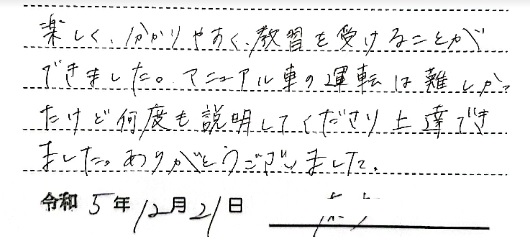 楽しく、分かりやすく、教習を受けることが
できました。マニュアル車の運転は難しかっ
たけど何度も説明してくださり上達でき
ました。ありがとうございました。
令和 5年 12月 21日